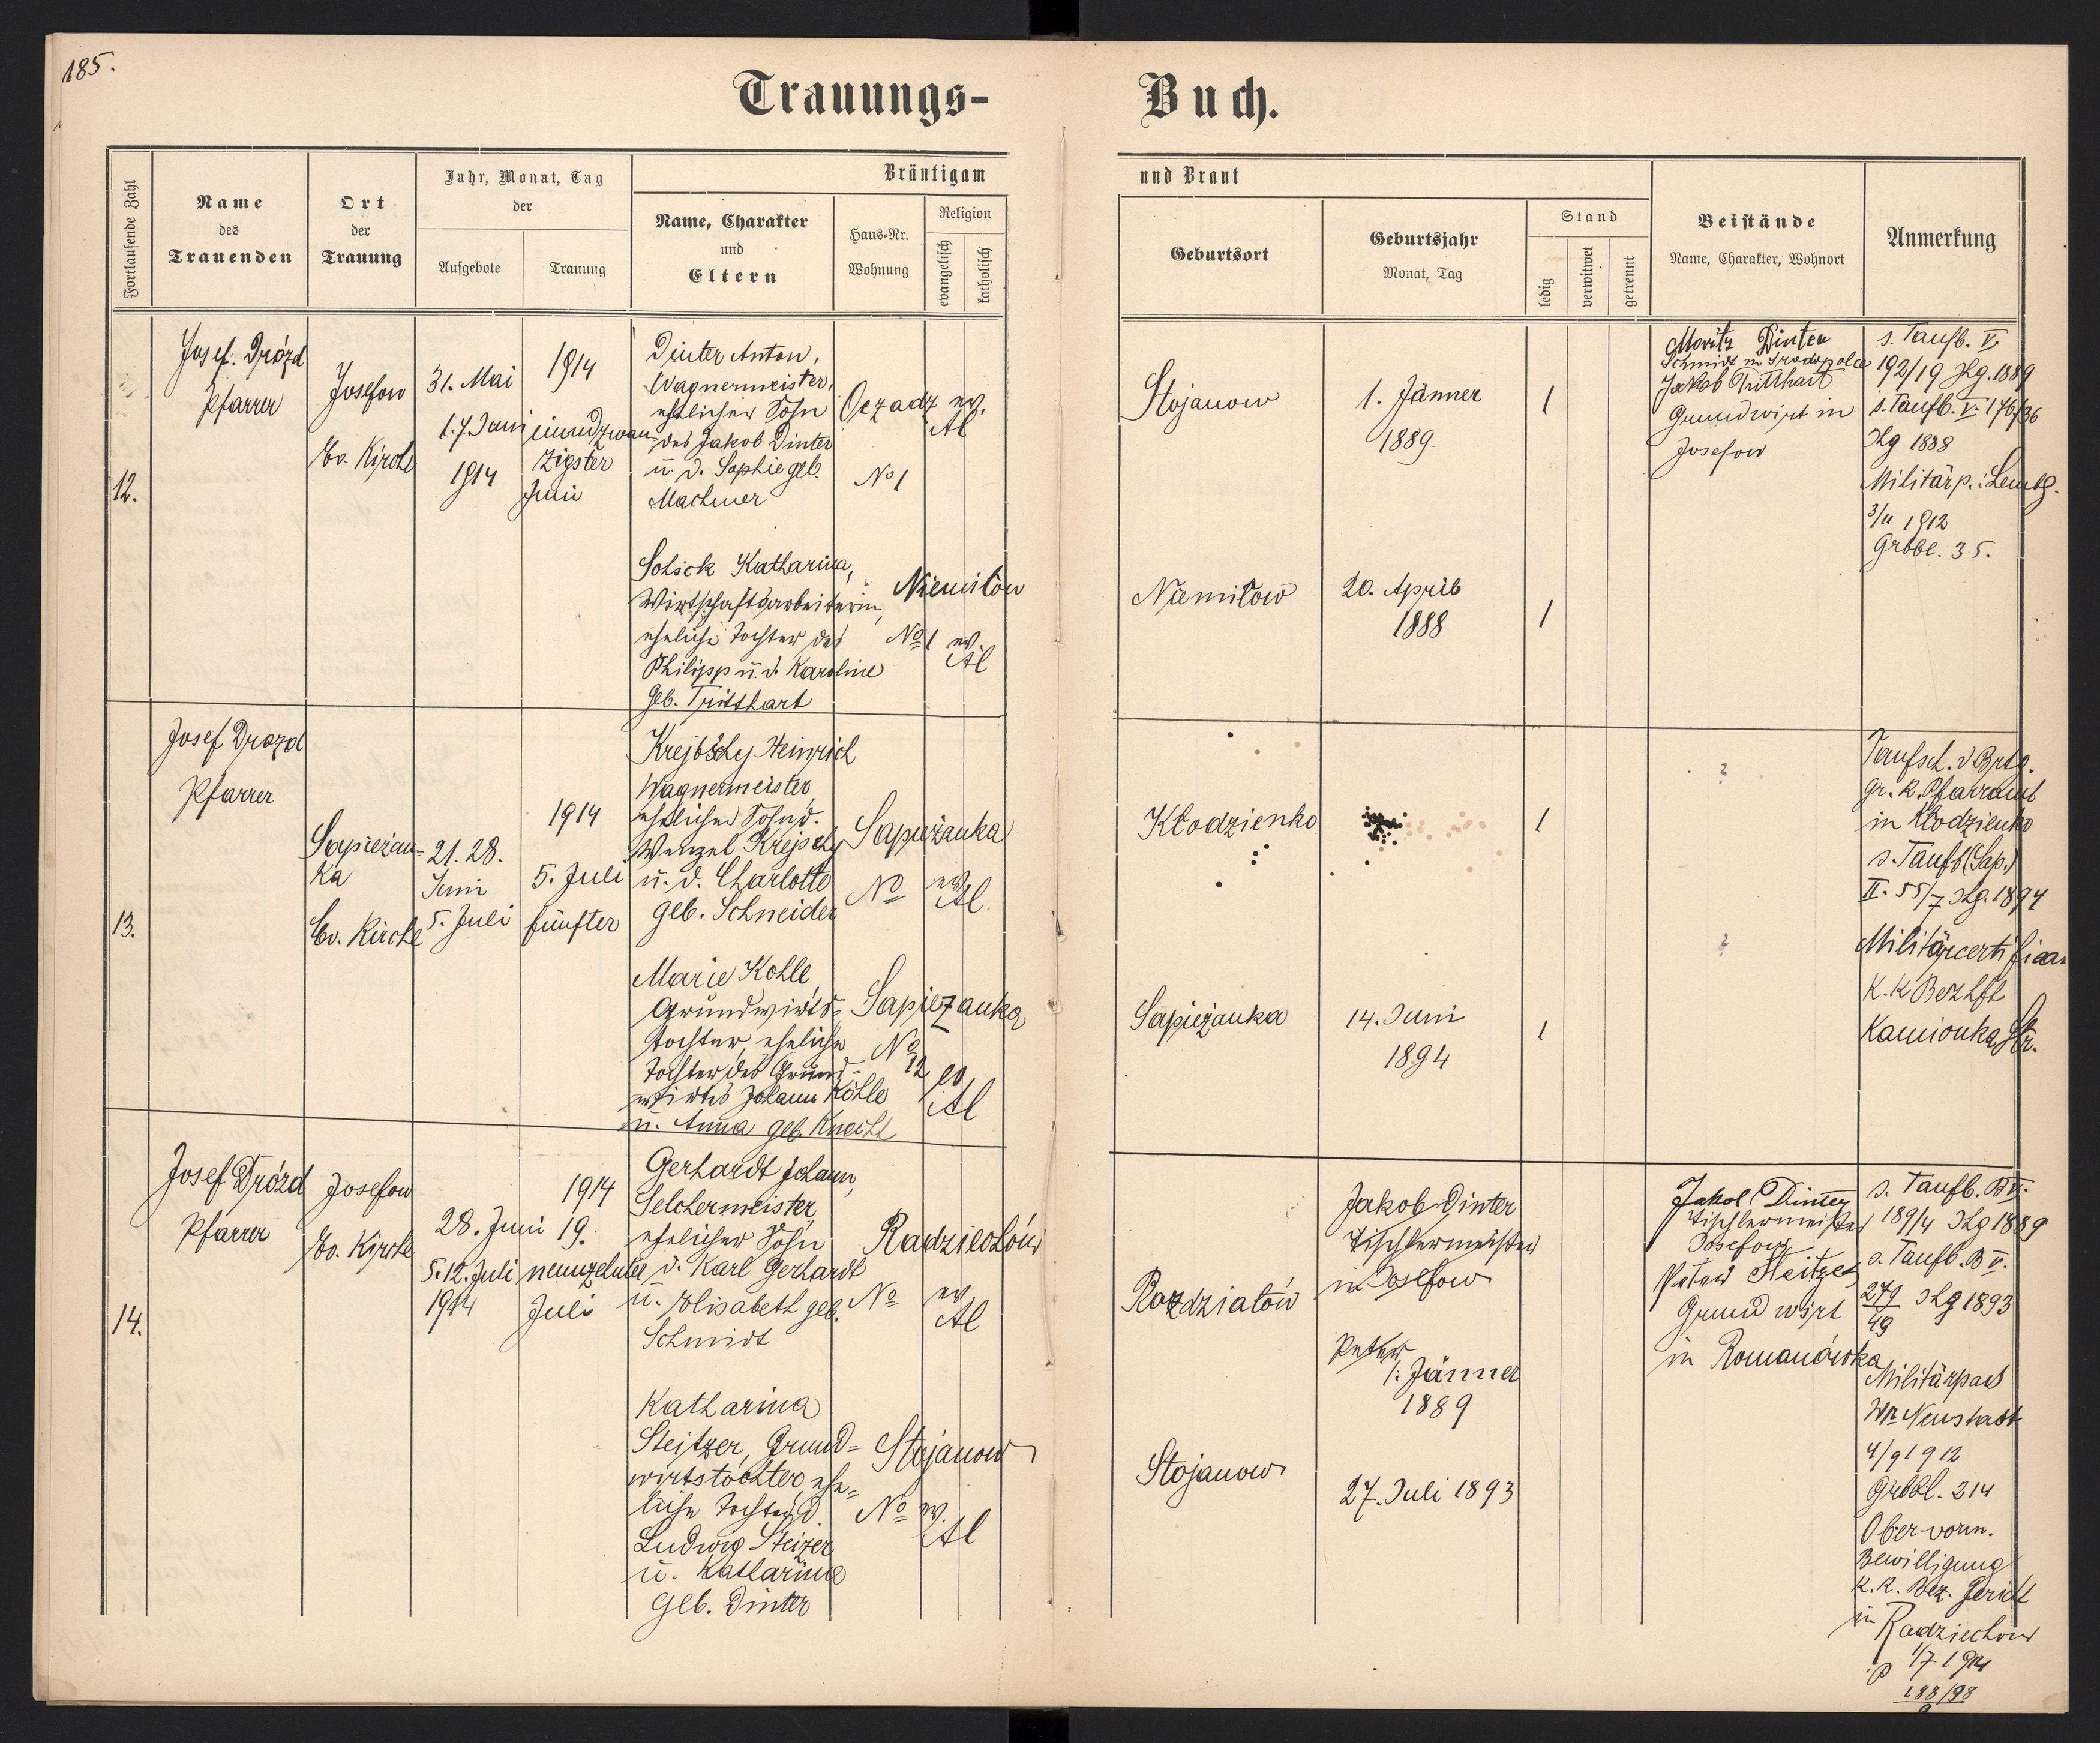 185.
Trauungs-
Buch.
Fortlaufende Zahl
Name
des
Trauenden
Ort
der
Trauung
Jahr, Monat, Tag
der
Aufgebote
Trauung
Bräutigam
Name, Charakter
und
Eltern
Haus-Nr.
Wohnung
Religion
evangelisch
katholisch
und Braut
Geburtsort
Geburtsjahr
Monat, Tag
Stand
ledig
verwitwet
getrennt
Beistände
Name, Charakter, Wohnort
Anmerkung
12.
Josef Drózd
Pfarrer
Josefow
Ev. Kirche
31. Mai
1. 7 Juni
1914
1914
einundzwan
zigster
Juni
Dinter Anton,
Wagnermeister,
ehelicher Sohn
des Jakob Dinter
u. d. Sophie geb.
Machmer
No 1
ev.
Al
Stojanow
1. Jänner
1889.
1
Moritz Dinter
Schmidt in
Jakob Tritthart
Grundwirt in
Josefow
s. Taufb. V.
192/19 Jhg. 1889
s. Taufb. V. 176/36
Jhg 1888
Militärp.: Lembg.
3/11 1912
Grbbl. 35.
Katharina,
Wirtschaftsarbeiterin,
eheliche Tochter des
Philipp u. d. Karoline
geb. Tritthart
Niemiłow
No 1
ev.
Al
Niemiłow
20. April
1888
1
13.
Josef Drozd
Pfarrer
Sapieżan-
ka
Ev. Kirche
21. 28.
Juni
5. Juli
1914
5. Juli
fünfter
Heinrich
Wagnermeister
ehelicher Sohn d.
Wenzel Krejschy
u. d. Charlotte
geb. Schneider
Sapieżanka
No
ev.
Al
Kłodzienko
1
?
Taufsch. d Brtg.
gr. K. Pfarramt
in Kłodzienko
s. Taufb (Sap.)
II. 55/7 Jhg. 1894
Marie Kohle,
Grundwirts-
tochter, eheliche
Tochter des Grund-
wirtes Johann Köhle
u. Anna geb. Knecht
Sapieżanka
No
12
ev.
Al
Sapieżanka
14. Juni
1894
1
?
K. K Bezhft
Kamionka Str.
14.
Josef Drózd
Pfarrer
Josefow
Ev. Kirche
28. Juni
5. 12. Juli
1914
1914
19.
neunzehnter
Juli
Gerhardt Johann,
Selchermeister,
ehelicher Sohn
d. Karl Gerhardt
u. Elisabeth geb.
Schmidt
Radziechów
No
ev.
Al
Jakob Dinter
Tischlermeister
in Josefow
Peter
1. Jänner
1889
Jakob Dinter
Tischlermeister
Josefow
Peter Steitzer
Grundwirt
in Romanówka
s. Taufb. B V.
189/4 Jhg 1889
s. Taufb. B V.
279/49 Jhg 1893
Militärpass
Wr. Neustadt
4/9 1912
Grbbl. 214
Katharina
Steitzer, Grund-
wirtstochter, ehe-
liche Tochter d.
Ludwig Steizer
u. Katharina
geb. Dinter
Stojanow
No
ev.
Al
Stojanow
27. Juli 1893
Ober-vorm.
Bewilligung
K. K. Bez. Gericht
in Radziechow
1/7 1914
P 188/98